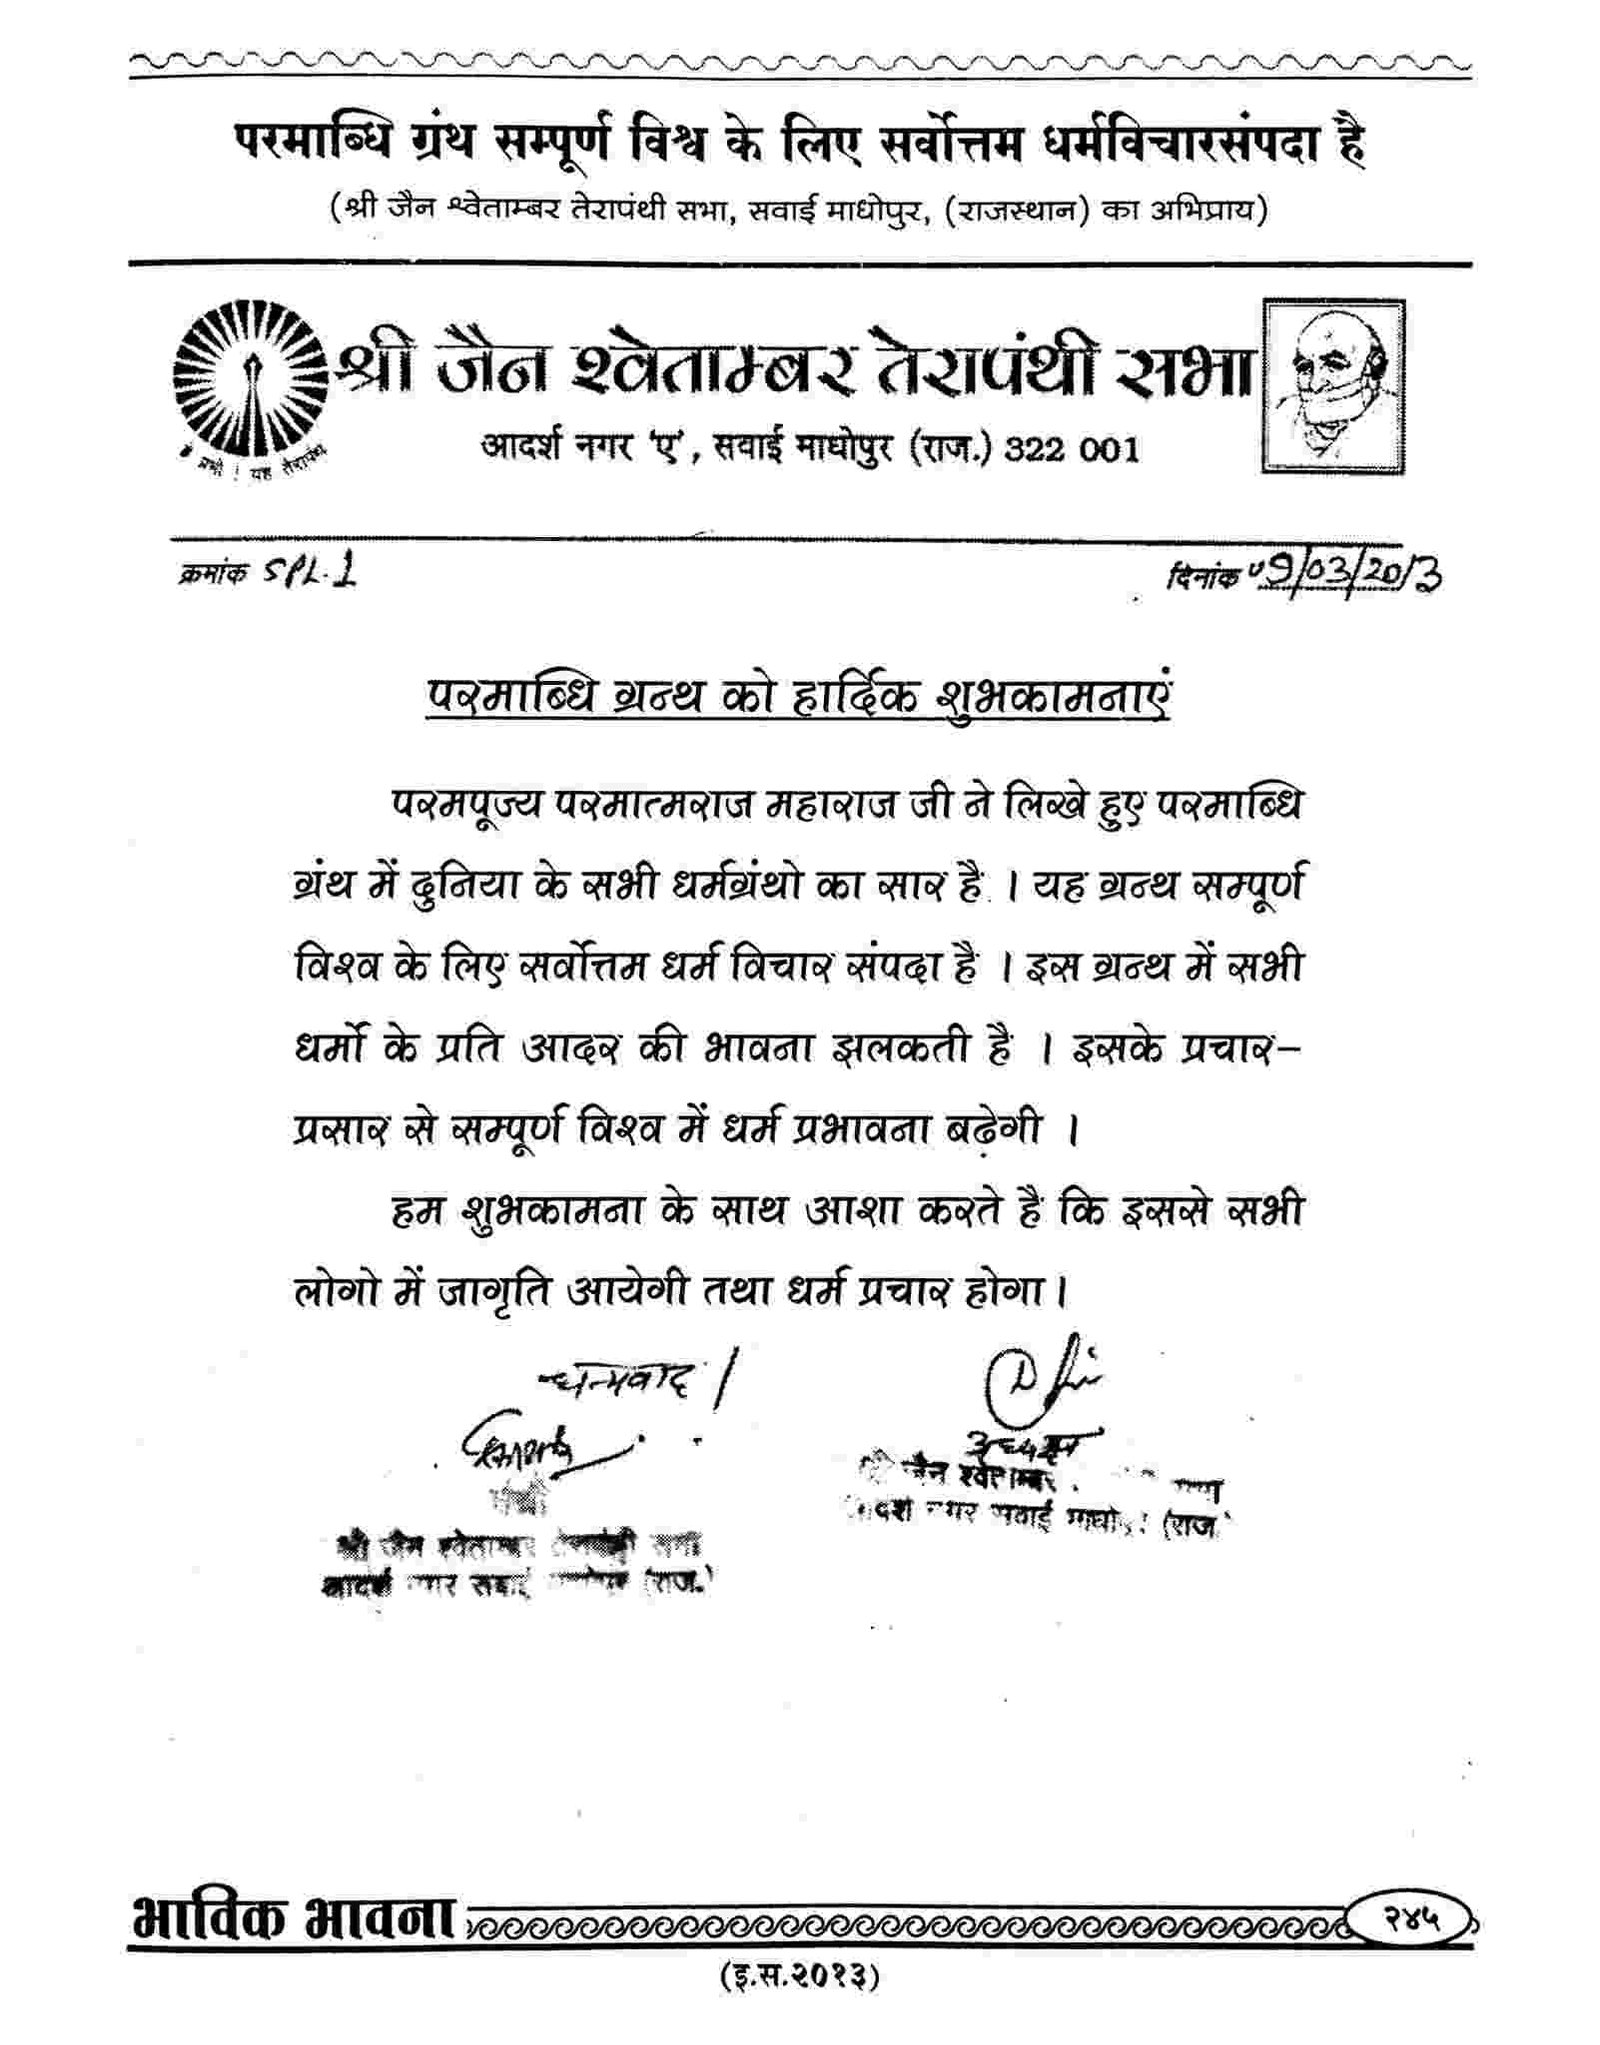 परमाब्धि ग्रंथ सम्पूर्ण विश्व के लिए सर्वोत्तम धर्मविचारसंपदा है
(श्री जैन श्वेताम्बर तेरापंथी सभा, सवाई माधोपुर, (राजस्थान) का अभिप्राय)
श्री जैन श्वेताम्बर तेरापंथी सभा
आदर्श नगर 'ए', सवाई माधोपुर (राज.) 322 001
प्रभो ! यह तेरापंथ
क्रमांक SPL.1
दिनांक 09/03/2013
परमाब्धि ग्रन्थ को हार्दिक शुभकामनाएं
परमपूज्य परमात्मराज महाराज जी ने लिखे हुए परमाब्धि
ग्रंथ में दुनिया के सभी धर्मग्रंथो का सार है । यह ग्रन्थ सम्पूर्ण
विश्व के लिए सर्वोत्तम धर्म विचार संपदा है । इस ग्रन्थ में सभी
धर्मो के प्रति आदर की भावना झलकती है । इसके प्रचार-
प्रसार से सम्पूर्ण विश्व में धर्म प्रभावना बढ़ेगी ।
हम शुभकामना के साथ आशा करते है कि इससे सभी
लोगो में जागृति आयेगी तथा धर्म प्रचार होगा।
धन्यवाद।
अध्यक्ष
जैन श्वेताम्बर
सवाई (राज
मंत्री
श्री जैन श्वेताम्बर तेरापंथी सभा
आदर्श नगर सवाई (राज.)
भाविक भावना
२४५
(इ.स.२०१३)